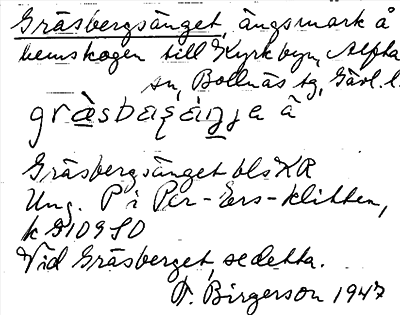 Gräsbergsänget, ängsmark å
hemskogen till Kyrkbyn, Alfta
sn, Bollnäs tg, Gävl. l.
Gräsbergsänget bls KR
Ung. P i Per-Ers-klitten,
k G109 SO
Vid Gräsberget, se detta.
T. Birgerson 1947